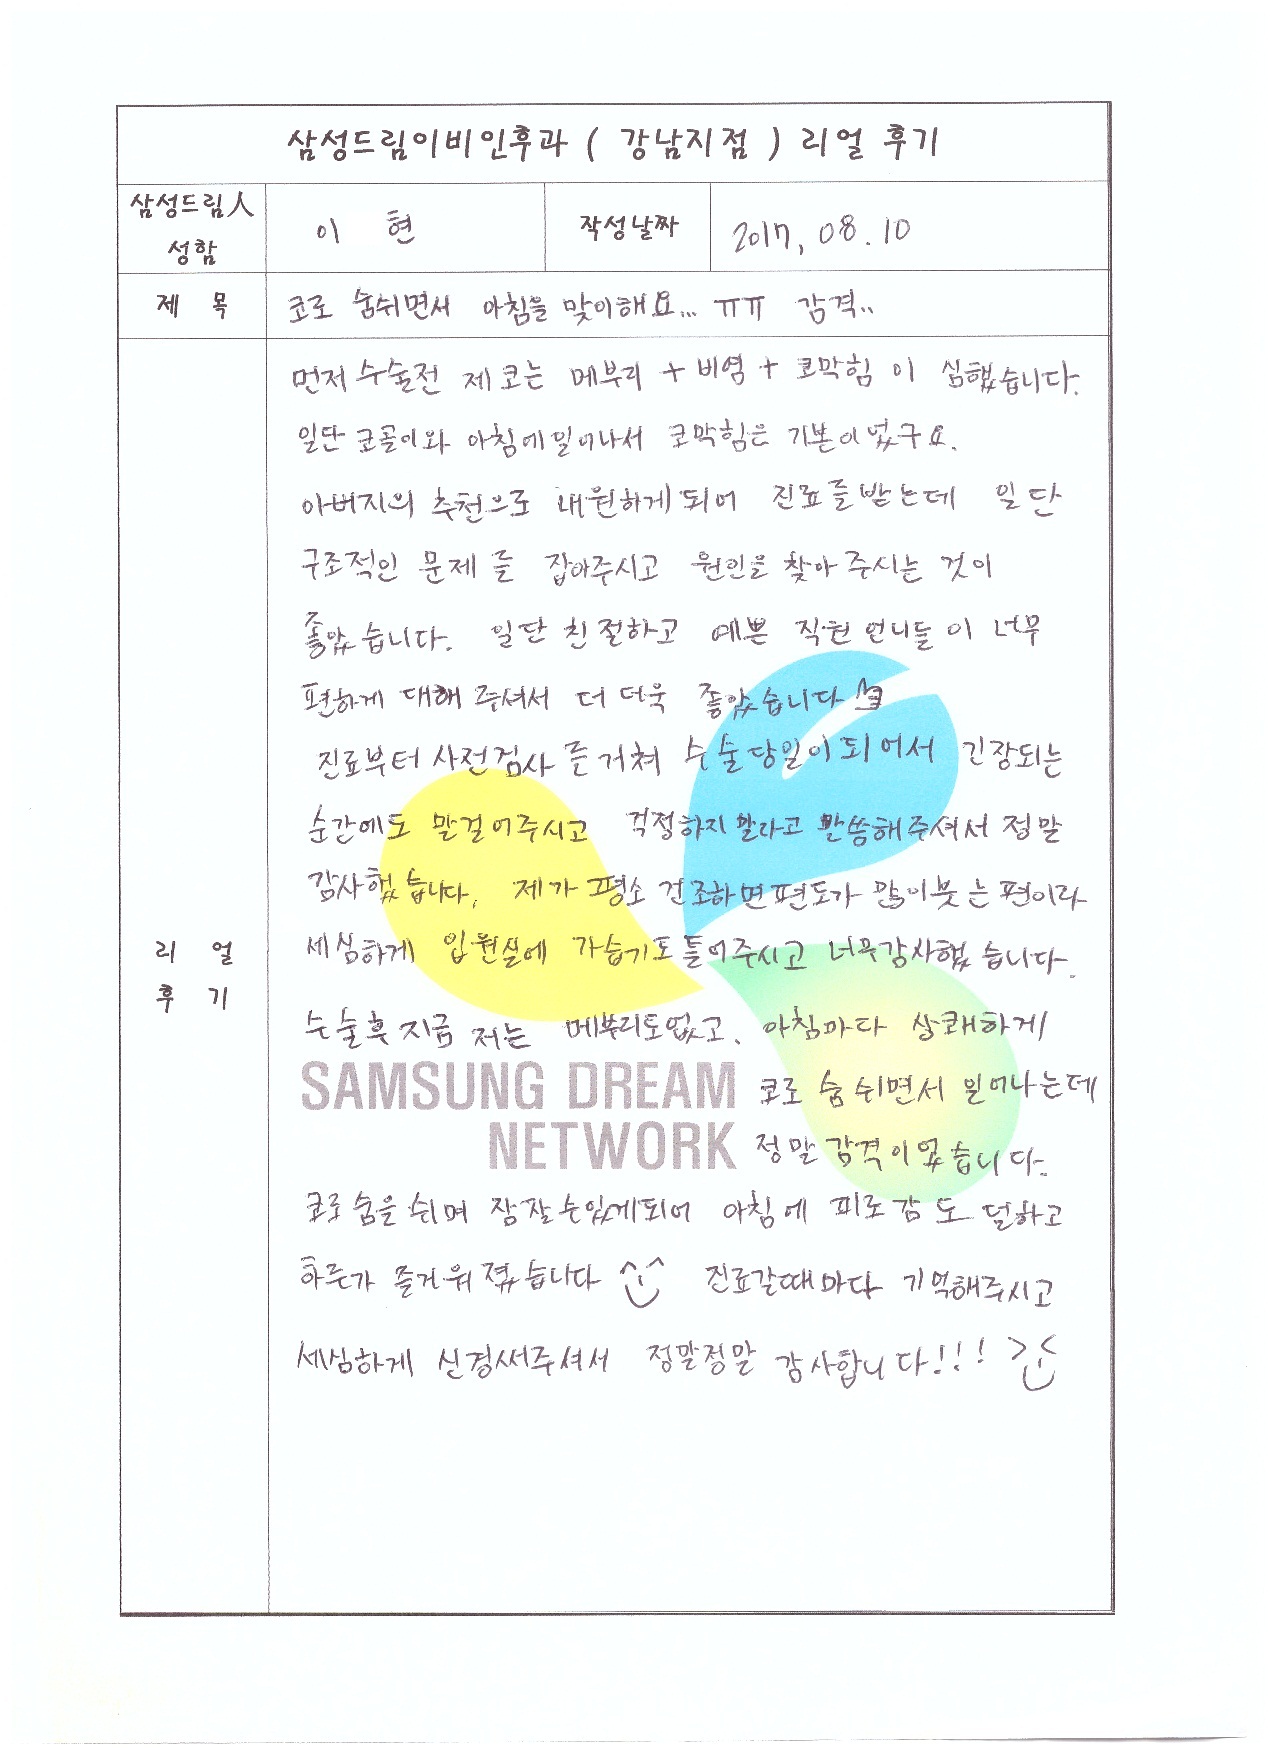 삼성드림이비인후과 ( 강남지점 ) 리얼 후기
삼성드림人
성함
이 현
작성날짜
2017, 08. 10
제 목
코로 숨쉬면서 아침을 맞이해요... ㅠㅠ 감격..
리 얼
후 기
먼저 수술전 제 코는 메부리 + 비염 + 코막힘 이 심했습니다.
일단 코골이와 아침에일어나서 코막힘은 기본이었구요.
아버지의 추천으로 내원하게되어 진료를받는데 일단
구조적인 문제 를 잡아주시고 원인을 찾아 주시는 것이
좋았습니다. 일단 친절하고 예쁜 직원 언니들 이 너무
편하게 대해 주셔서 더 더욱 좋았습니다
진료부터 사전검사 를거쳐 수술당일이되어서 긴장되는
순간에도 말걸어주시고 걱정하지말라고 말씀해주셔서 정말
감사했습니다. 제가 평소 건조하면편도가 많이붓는편이라
세심하게 입원실에 가습기도틀어주시고 너무감사했습니다.
수술후지금 저는 메부리도없고, 아침마다 상쾌하게
코로 숨쉬면서 일어나는데
정말감격이었습니다.
SAMSUNG DREAM
NETWORK
코로 숨을쉬며 잠잘수있게되어 아침에 피로감도 덜하고
하루가 즐거워졌습니다 ^^ 진료갈때마다 기억해주시고
세심하게 신경써주셔서 정말정말 감사합니다!!! ><